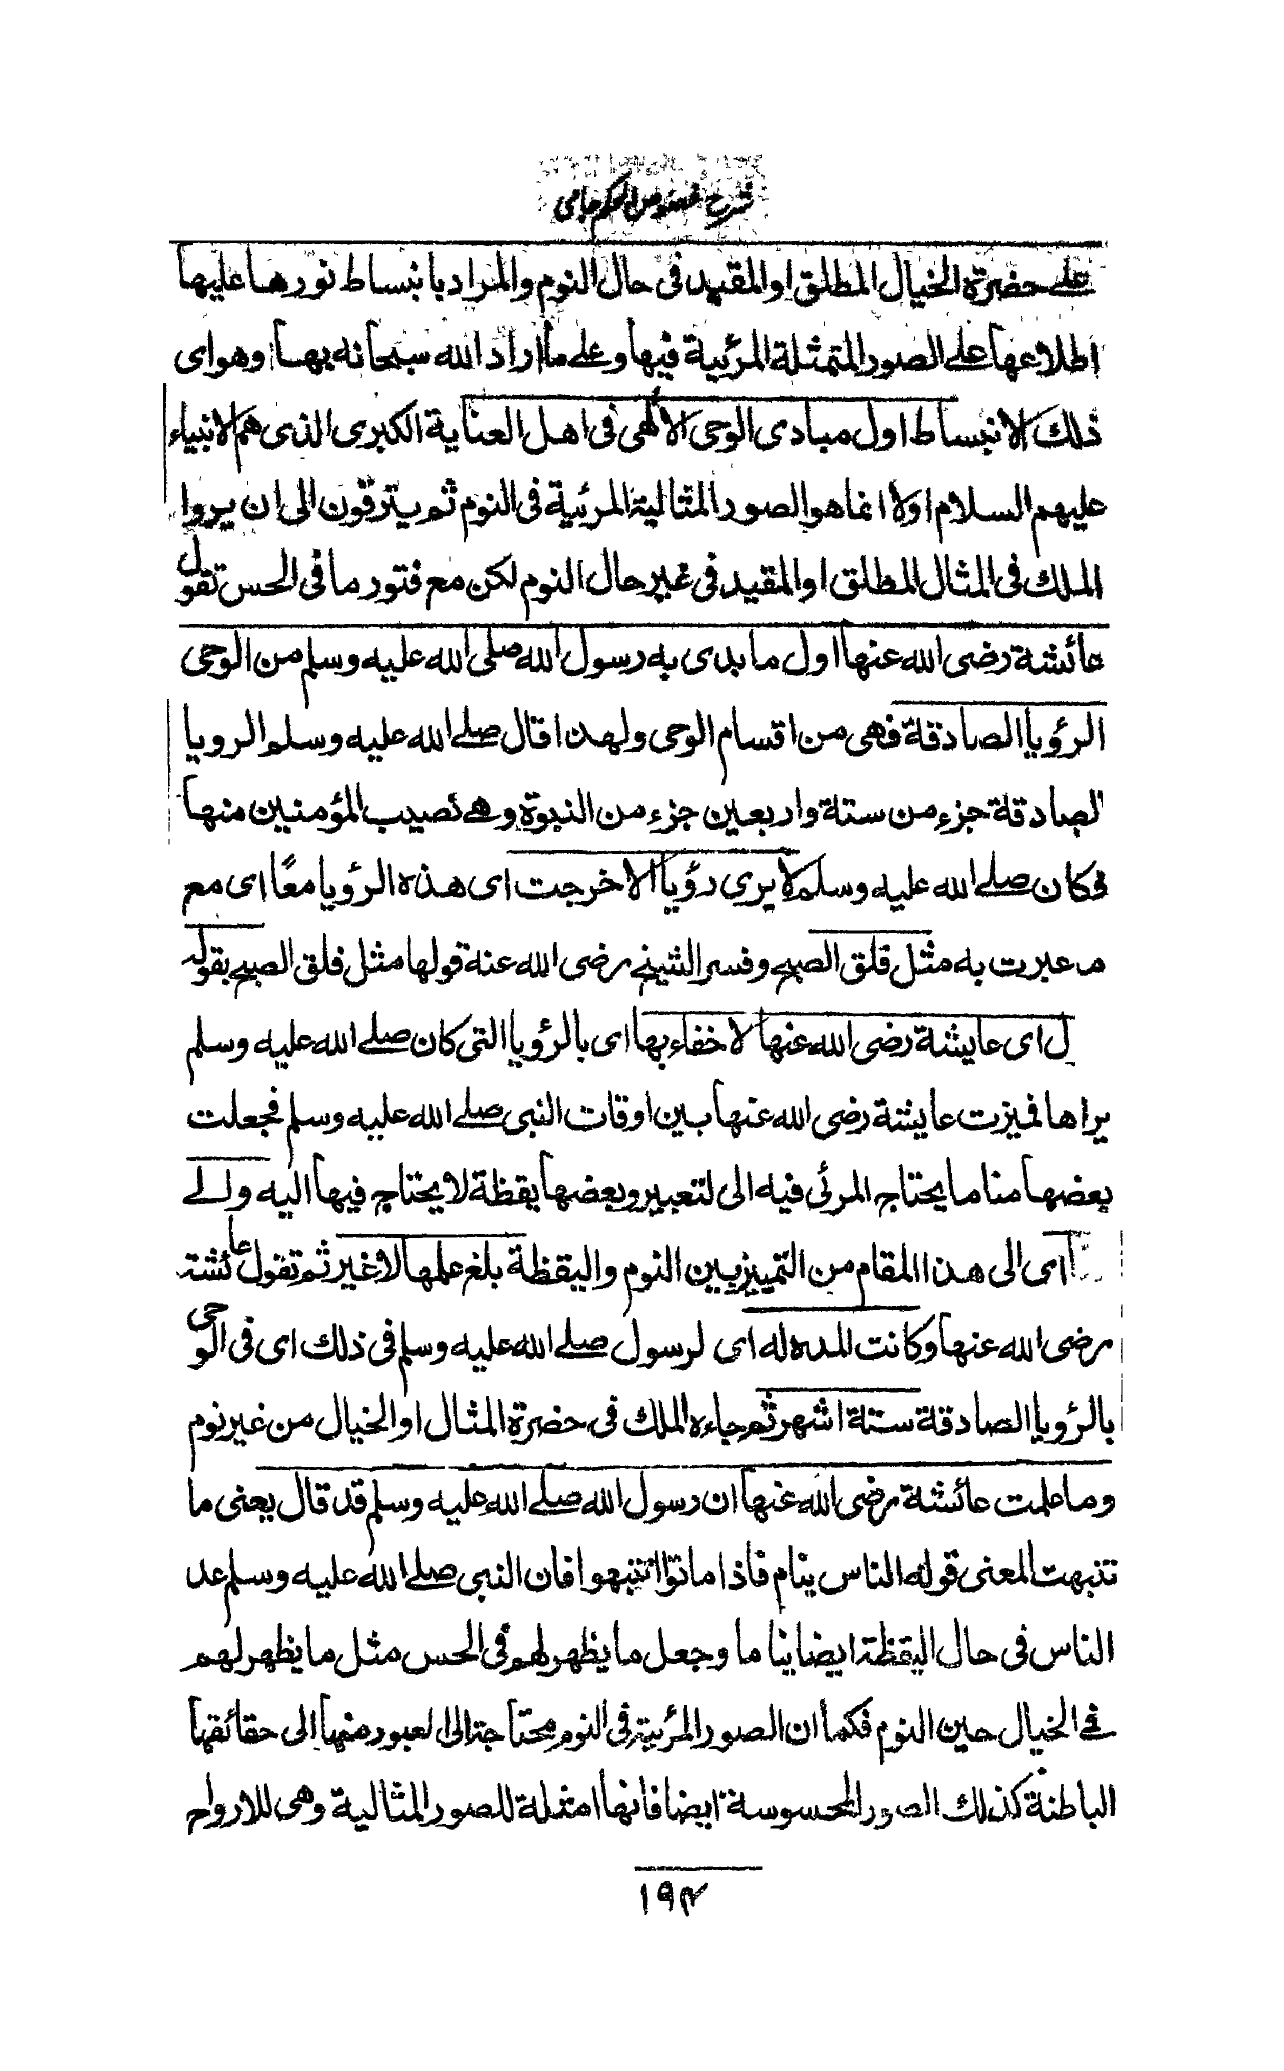 شرح فصوص الحكم جامى
على حضرة الخيال المطلق او المقيد فى حال النوم والمراد بانبساط نورها عليها
اطلاعها على الصور المتمثلة المرئية فيها وعلى ما اراد الله سبحانه بها وهو اى
ذلك الانبساط اول مبادى الوحى الالٰهى فى اهل العناية الكبرى الذى هم الانبياء
عليهم السلام اولا انما هو الصور المثالية المرئية فى النوم ثم يترقون الى ان يروا
الملك فى المثال المطلق او المقيد فى غير حال النوم لكن مع فتور ما فى الحس تقول
عائشة رضى الله عنها اول ما بدى به رسول الله صلى الله عليه وسلم من الوحى
الرؤيا الصادقة فهى من اقسام الوحى ولهذا قال صلے الله عليه وسلم الرويا
لصادقة جزء من ستة واربعين جزء من النبوة وهے نصيب المؤمنين منها
فكان صلے الله عليه وسلم لا يرى رؤيا الا خرجت اى هذه الرؤيا معًا اى مع
ما عبرت به مثل فلق الصبح وفسر الشيخ رضى الله عنه قولها مثل فلق الصبح بقوله
ل اى عايشة رضى الله عنها لا خفاء بها اى بالرؤيا التى كان صلے الله عليه وسلم
يراها فميزت عايشة رضى الله عنها بين اوقات النبى صلے الله عليه وسلم فجعلت
بعضها مناما يحتاج المرئى فيه الى لتعبير وبعضها يقظة لا يحتاج فيها اليه والے
ا اى الى هذا المقام من التمييز بين النوم واليقظة بلغ علمها لا غير ثم تقول عائشة
رضى الله عنها وكانت المدة له اى لرسول صلے الله عليه وسلم فى ذلك اى فى الوحى
بالرؤيا الصادقة ستة اشهر ثم جاءه الملك فى حضرة المثال او الخيال من غير نوم
وما علمت عائشة رضى الله عنها ان رسول الله صلے الله عليه وسلم قد قال يعنى ما
تنبهت المعنى قوله الناس ينام فاذا ماتوا انتبهوا فان النبى صلے الله عليه وسلم عد
الناس فى حال اليقظة ايضا يناما وجعل ما يظهر لهم فى الحس مثل ما يظهر لهم
فے الخيال حين النوم فكما ان الصور المرئية فى النوم محتاجة الى العبور منها الى حقائقها
الباطنة كذلك الصور المحسوسة ايضا فانها امثلة للصور المثالية وهى للارواح
١٩٤